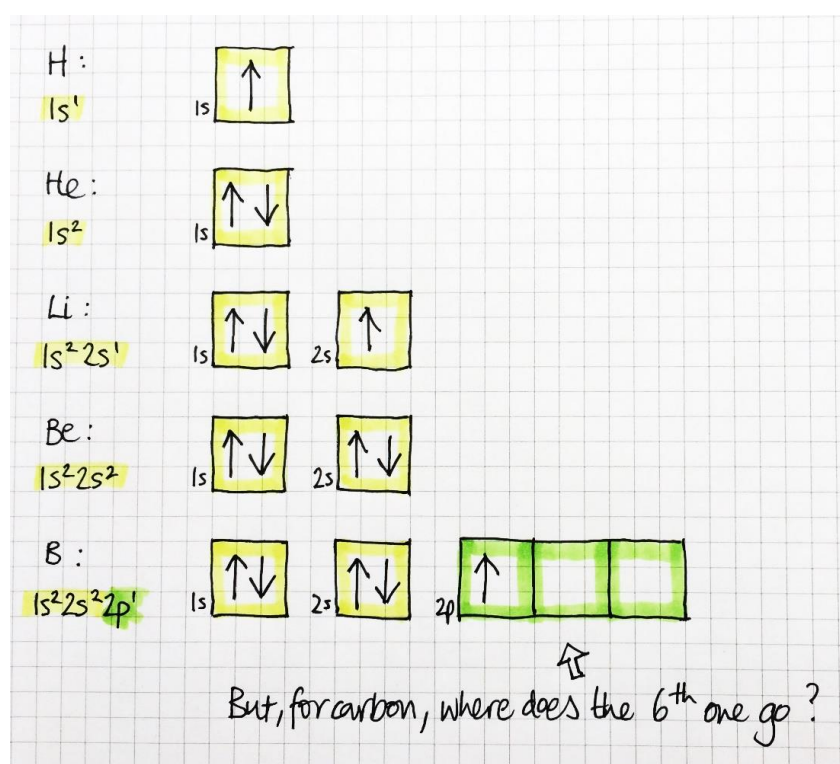 H :
1s¹
1s ↑
He :
1s²
1s ↑↓
Li :
1s² 2s¹
1s ↑↓ 2s ↑
Be :
1s² 2s²
1s ↑↓ 2s ↑↓
B :
1s² 2s² 2p¹
1s ↑↓ 2s ↑↓ 2p ↑
But, for carbon, where does the 6th one go ?